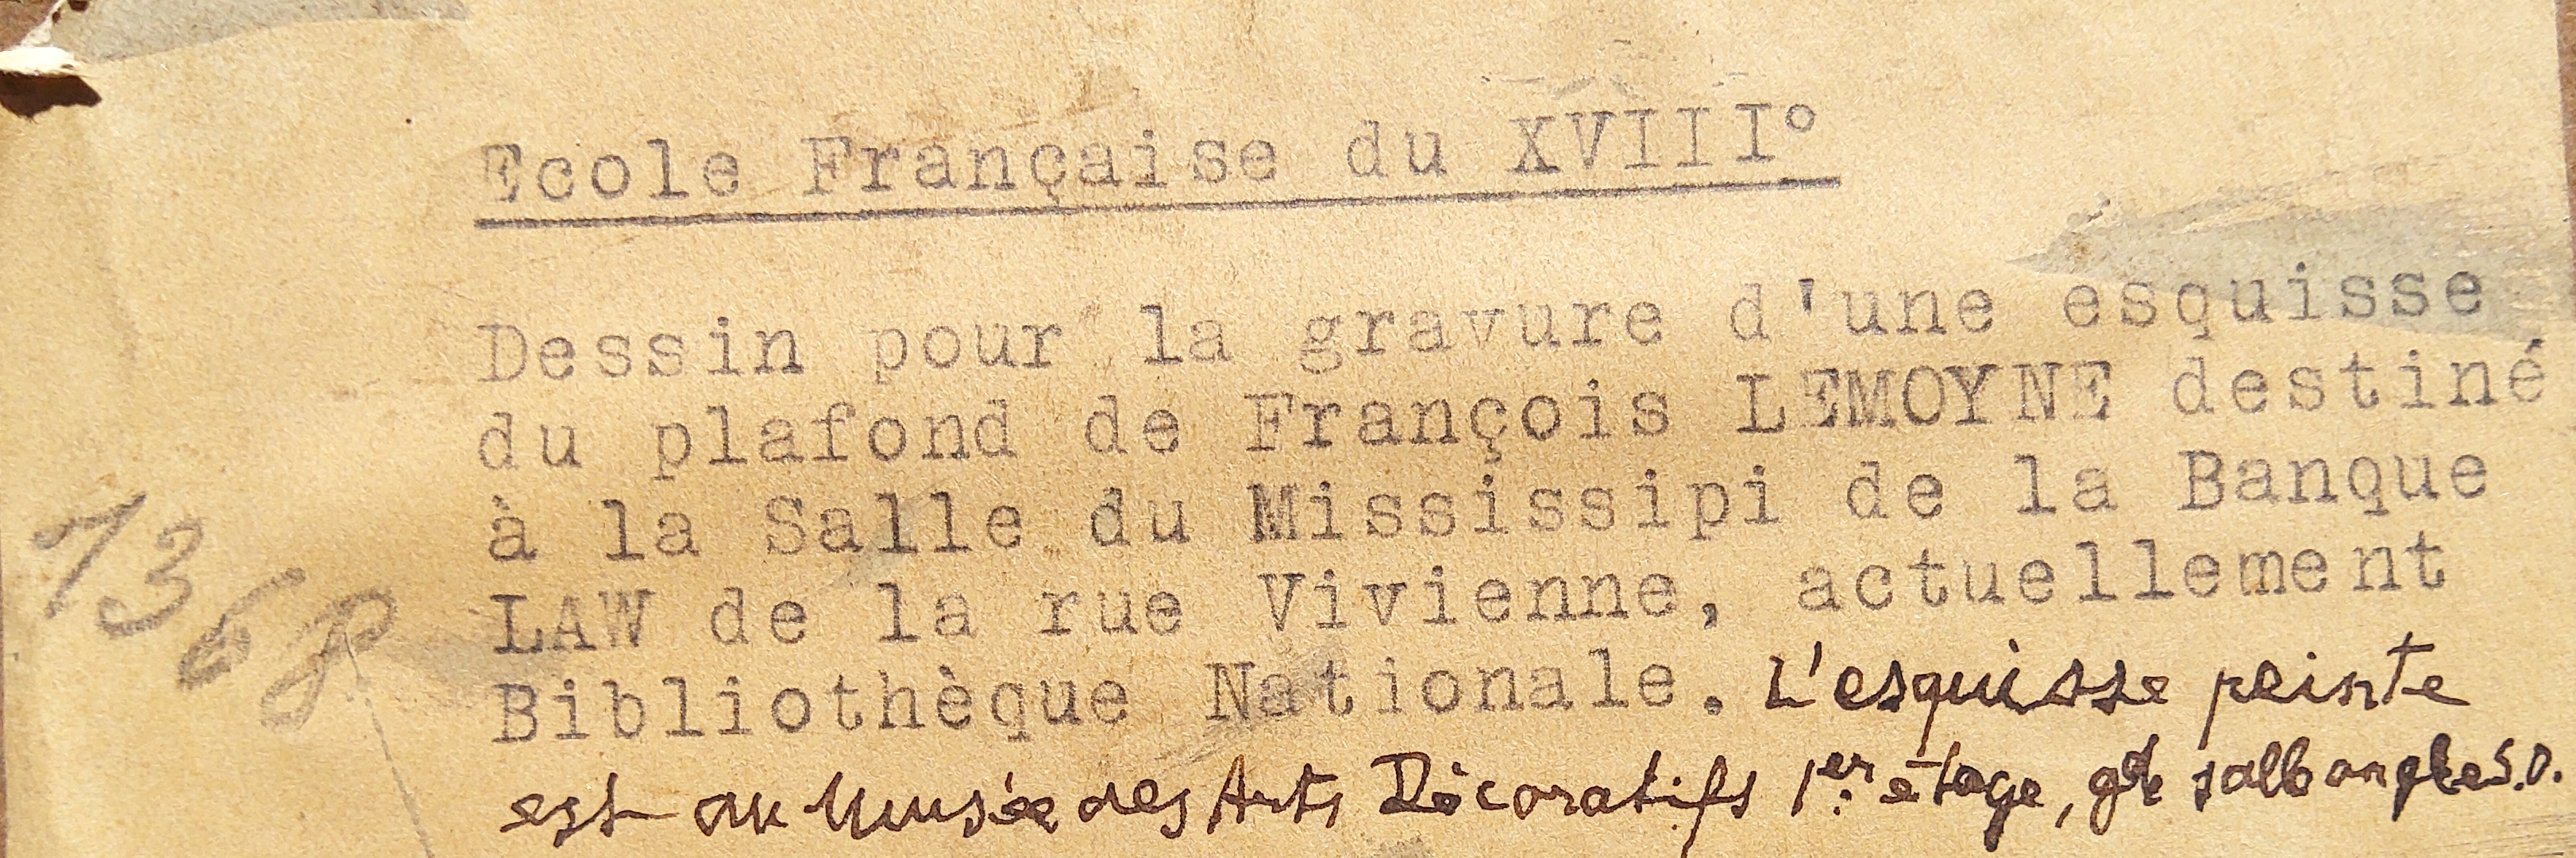 Ecole Française du XVIII°
Dessin pour la gravure d'une esquisse
du plafond de François LEMOYNE destiné
à la Salle du Mississipi de la Banque
LAW de la rue Vivienne, actuellement
Bibliothèque Nationale. L'esquisse peinte
est au Musée des Arts Décoratifs 1er étage, gde salle angle S.O.
7368